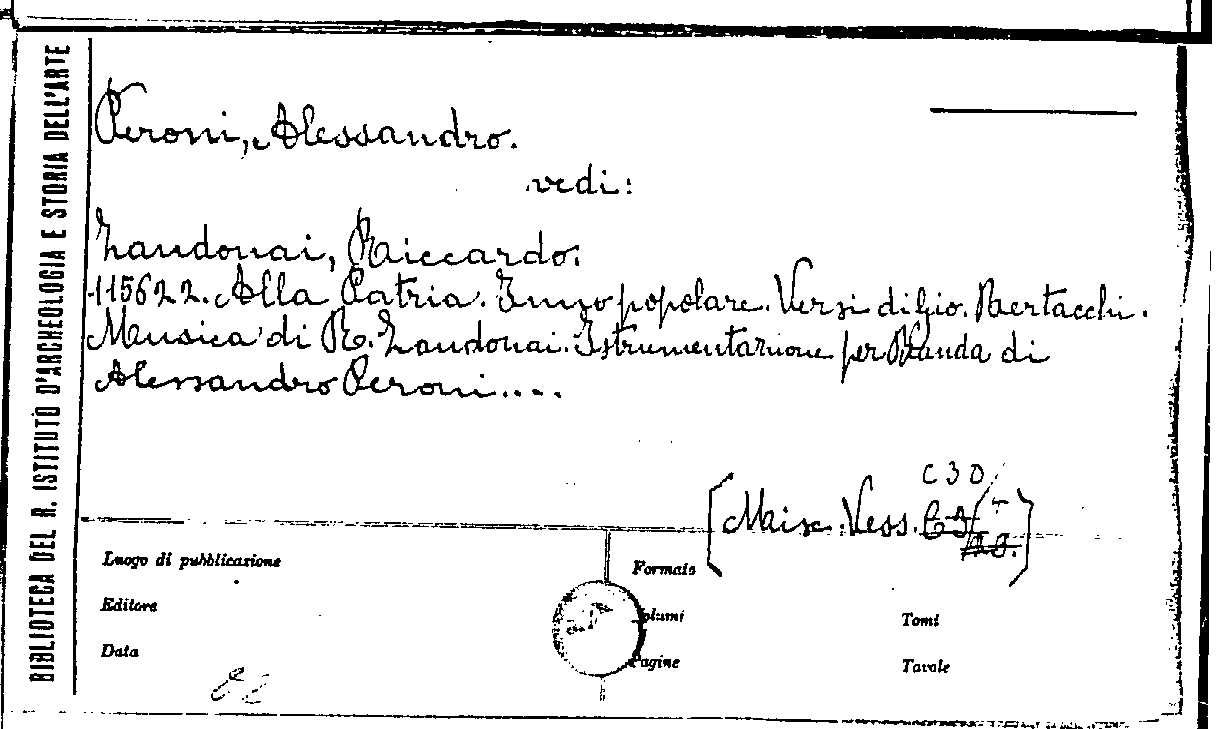 BIBLIOTECA DEL R. ISTITUTO D'ARCHEOLOGIA E STORIA DELL'ARTE
Peroni, Alessandro.
vedi:
Zandonai, Riccardo.
115622. Alla Patria. Inno popolare. Versi di Gio. Bertacchi.
Musica di R. Zandonai. Istrumentazione per Banda di
Alessandro Peroni....
C 30/
[Misc. Vess.
Luogo di pubblicazione
Formato
Editore
Volumi
Tomi
Data
Pagine
Tavole